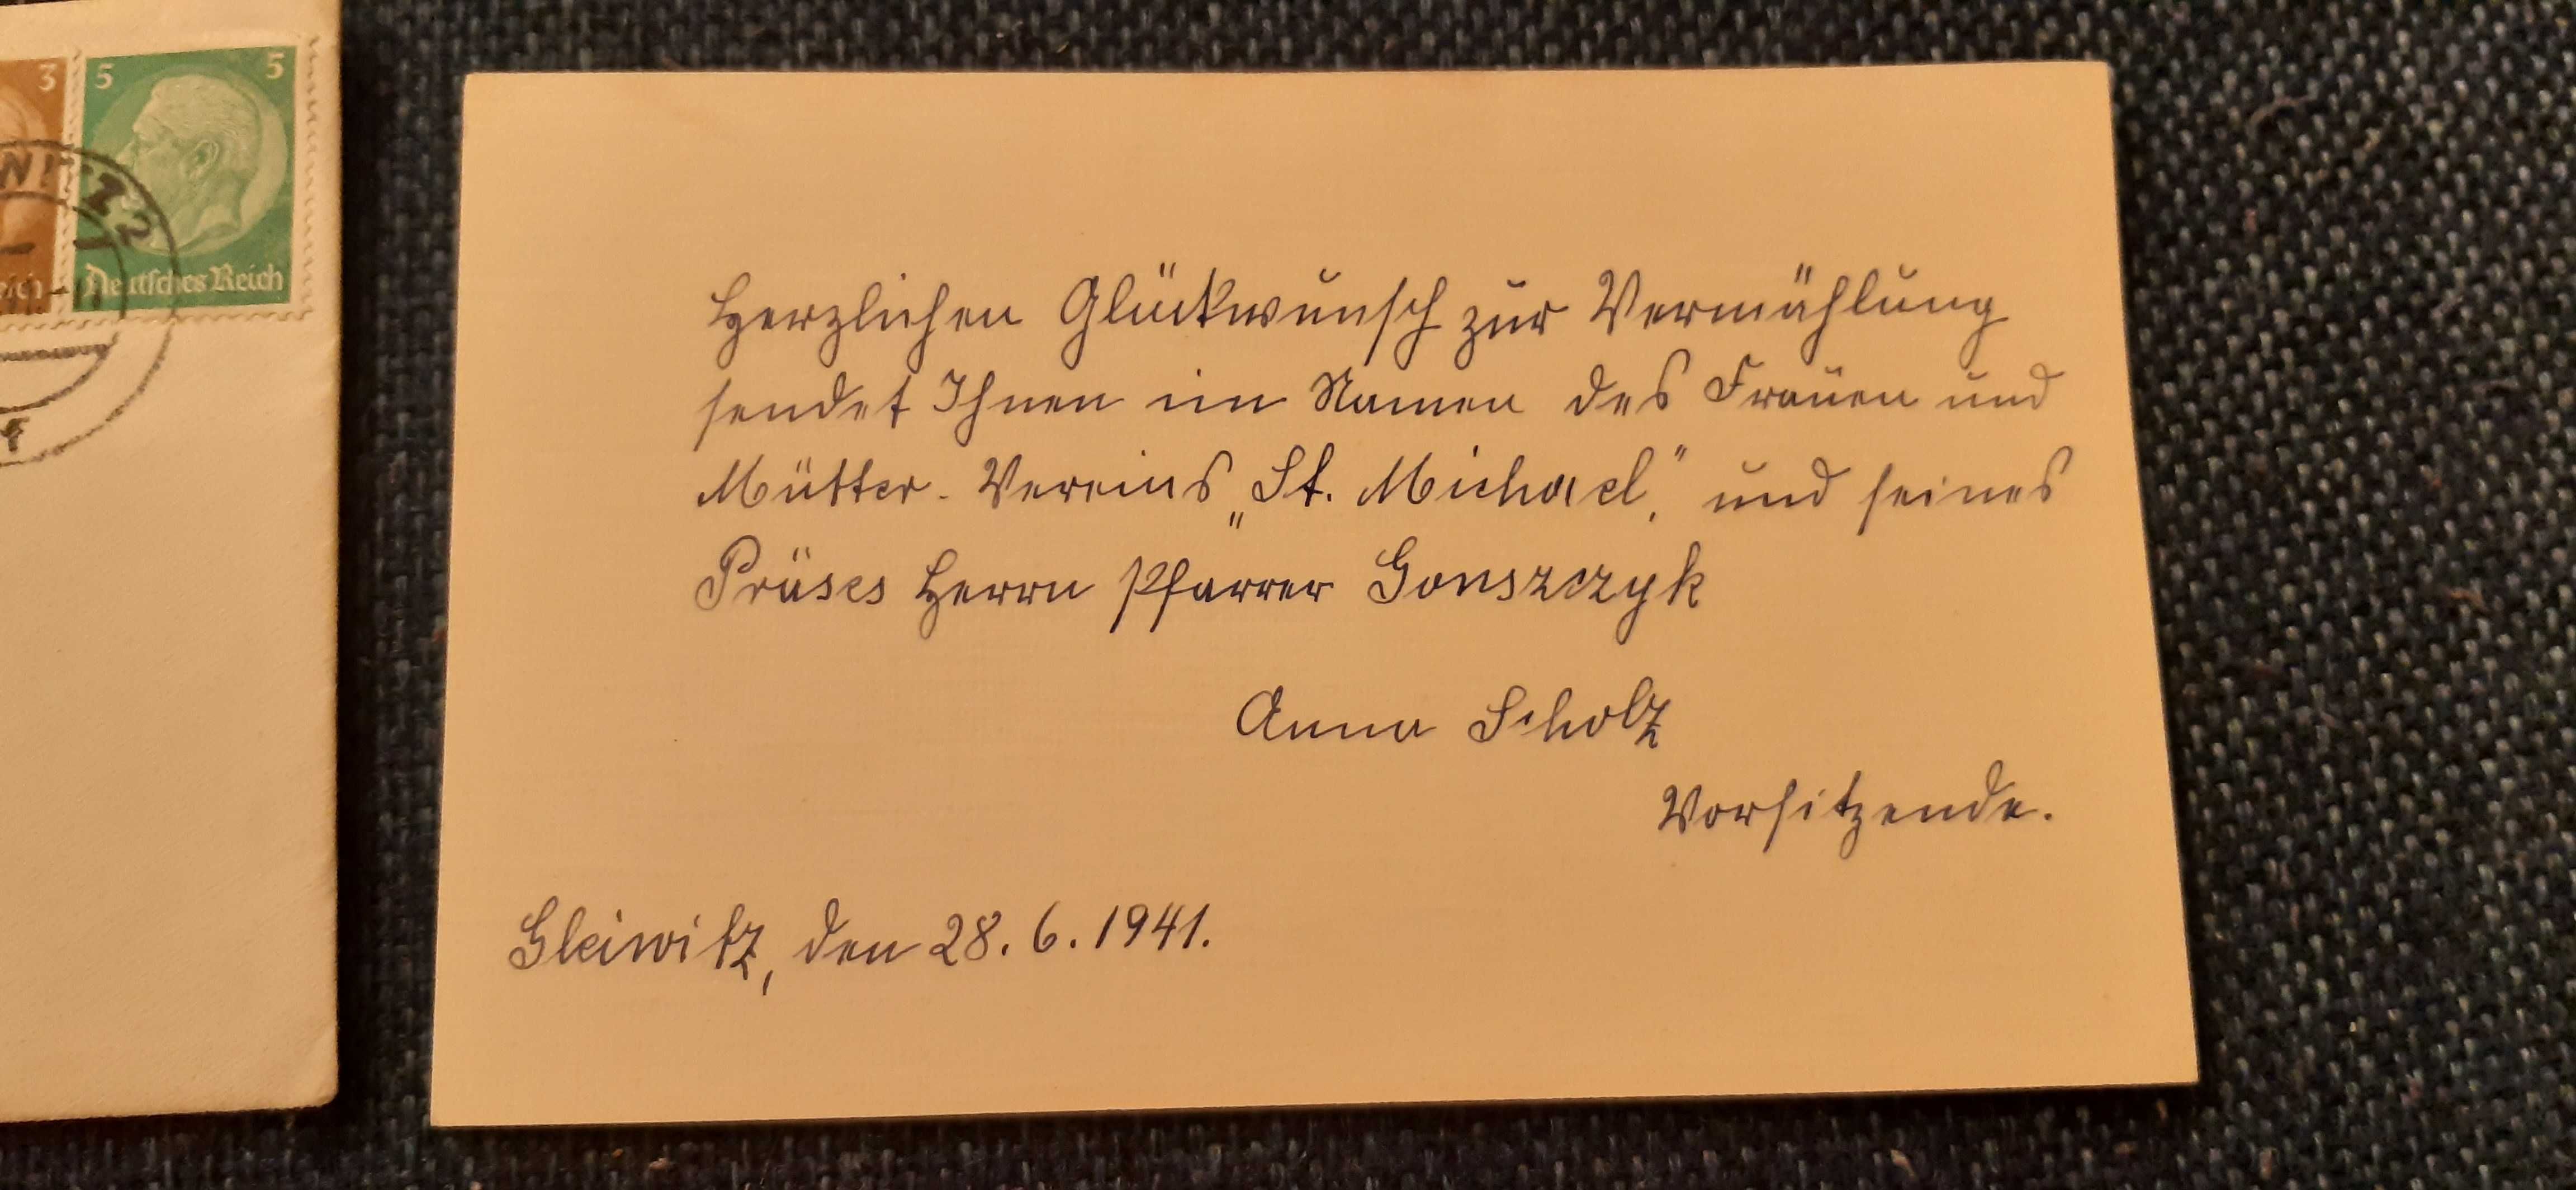 3
5 5
Deutsches Reich
Herzlichen Glückwunsch zur Vermählung
sendet Ihnen im Namen des Frauen und
Mütter-Vereins „St. Michael," und seines
Präses Herrn Pfarrer Gonszczyk
Anna Scholz
Vorsitzende.
Gleiwitz, den 28. 6. 1941.